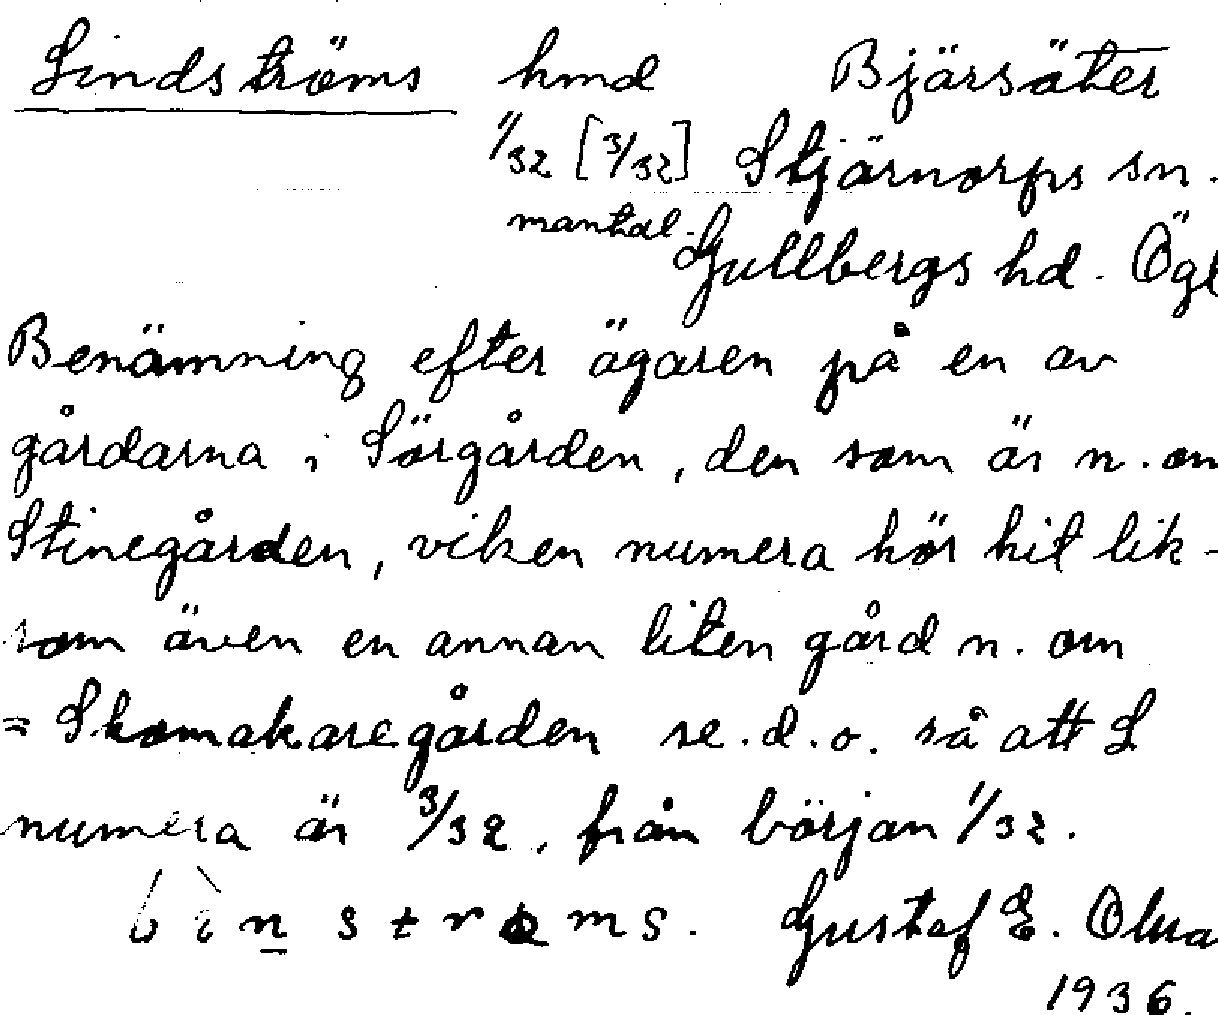 Lindströms hmd Bjärsäter
1/32 [3/32] Stjärnorps sn.
mantal. Gullbergs hd. Ögl
Benämning efter ägaren på en av
gårdarna i Sörgården, den som är n. om
Stinegården, vilken numera hör hit lik-
som även en annan liten gård n. om
= Skomakaregården se. d. o. så att L
numera är 3/32, från början 1/32.
Gustaf E.
1936.